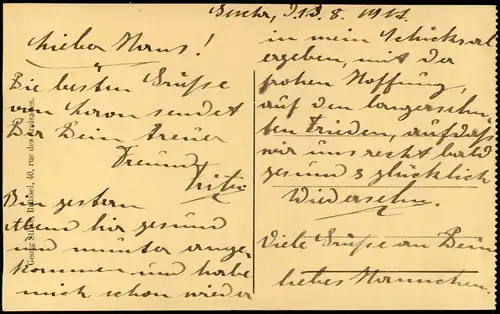 d. 13. 8. 1918.
Lieber Hans!
Die besten Grüße
von hier an sendet
Dir Dein treuer
Freund
Fritz
Bin gestern
Abend hier gesund
und munter ange-
kommen und habe
mich schon wieder
in mein Schicksal
ergeben, mit der
frohen Hoffnung,
auf den langersehn-
ten Frieden, aufdaß
wir uns recht bald
gesund & glücklich
Wiedersehn.
Viele Grüße an Dein
liebes Hannchen.
Georg Stilke, Brüssel, 40, rue des